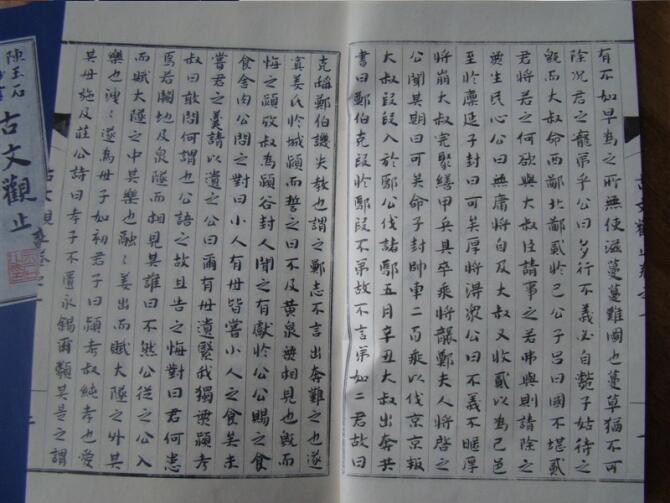 有不如早為之所無使滋蔓蔓難圖也蔓草猶不可
除況君之寵弟乎公曰多行不義必自斃子姑待之
既而大叔命西鄙北鄙貳於己公子呂曰國不堪貳
君將若之何欲與大叔臣請事之若弗與則請除之
無生民心公曰無庸將自及大叔又收貳以為己邑
至於廩延子封曰可矣厚將得眾公曰不義不暱厚
將崩大叔完聚繕甲兵具卒乘將襲鄭夫人將啓之
公聞其期曰可矣命子封帥車二百乘以伐京京報
大叔段段入於鄢公伐諸鄢五月辛丑大叔出奔共
書曰鄭伯克段於鄢段不弟故不言弟如二君故曰
克稱鄭伯譏失教也謂之鄭志不言出奔難之也遂
寘姜氏於城潁而誓之曰不及黃泉無相見也既而
悔之潁考叔為潁谷封人聞之有獻於公公賜之食
食舍肉公問之對曰小人有母皆嘗小人之食矣未
嘗君之羹請以遺之公曰爾有母遺繄我獨無潁考
叔曰敢問何謂也公語之故且告之悔對曰君何患
焉若闕地及泉隧而相見其誰曰不然公從之公入
而賦大隧之中其樂也融〻姜出而賦大隧之外其
樂也洩〻遂為母子如初君子曰潁考叔純孝也愛
其母施及莊公詩曰孝子不匱永錫爾類其是之謂
陳玉石
古文觀止